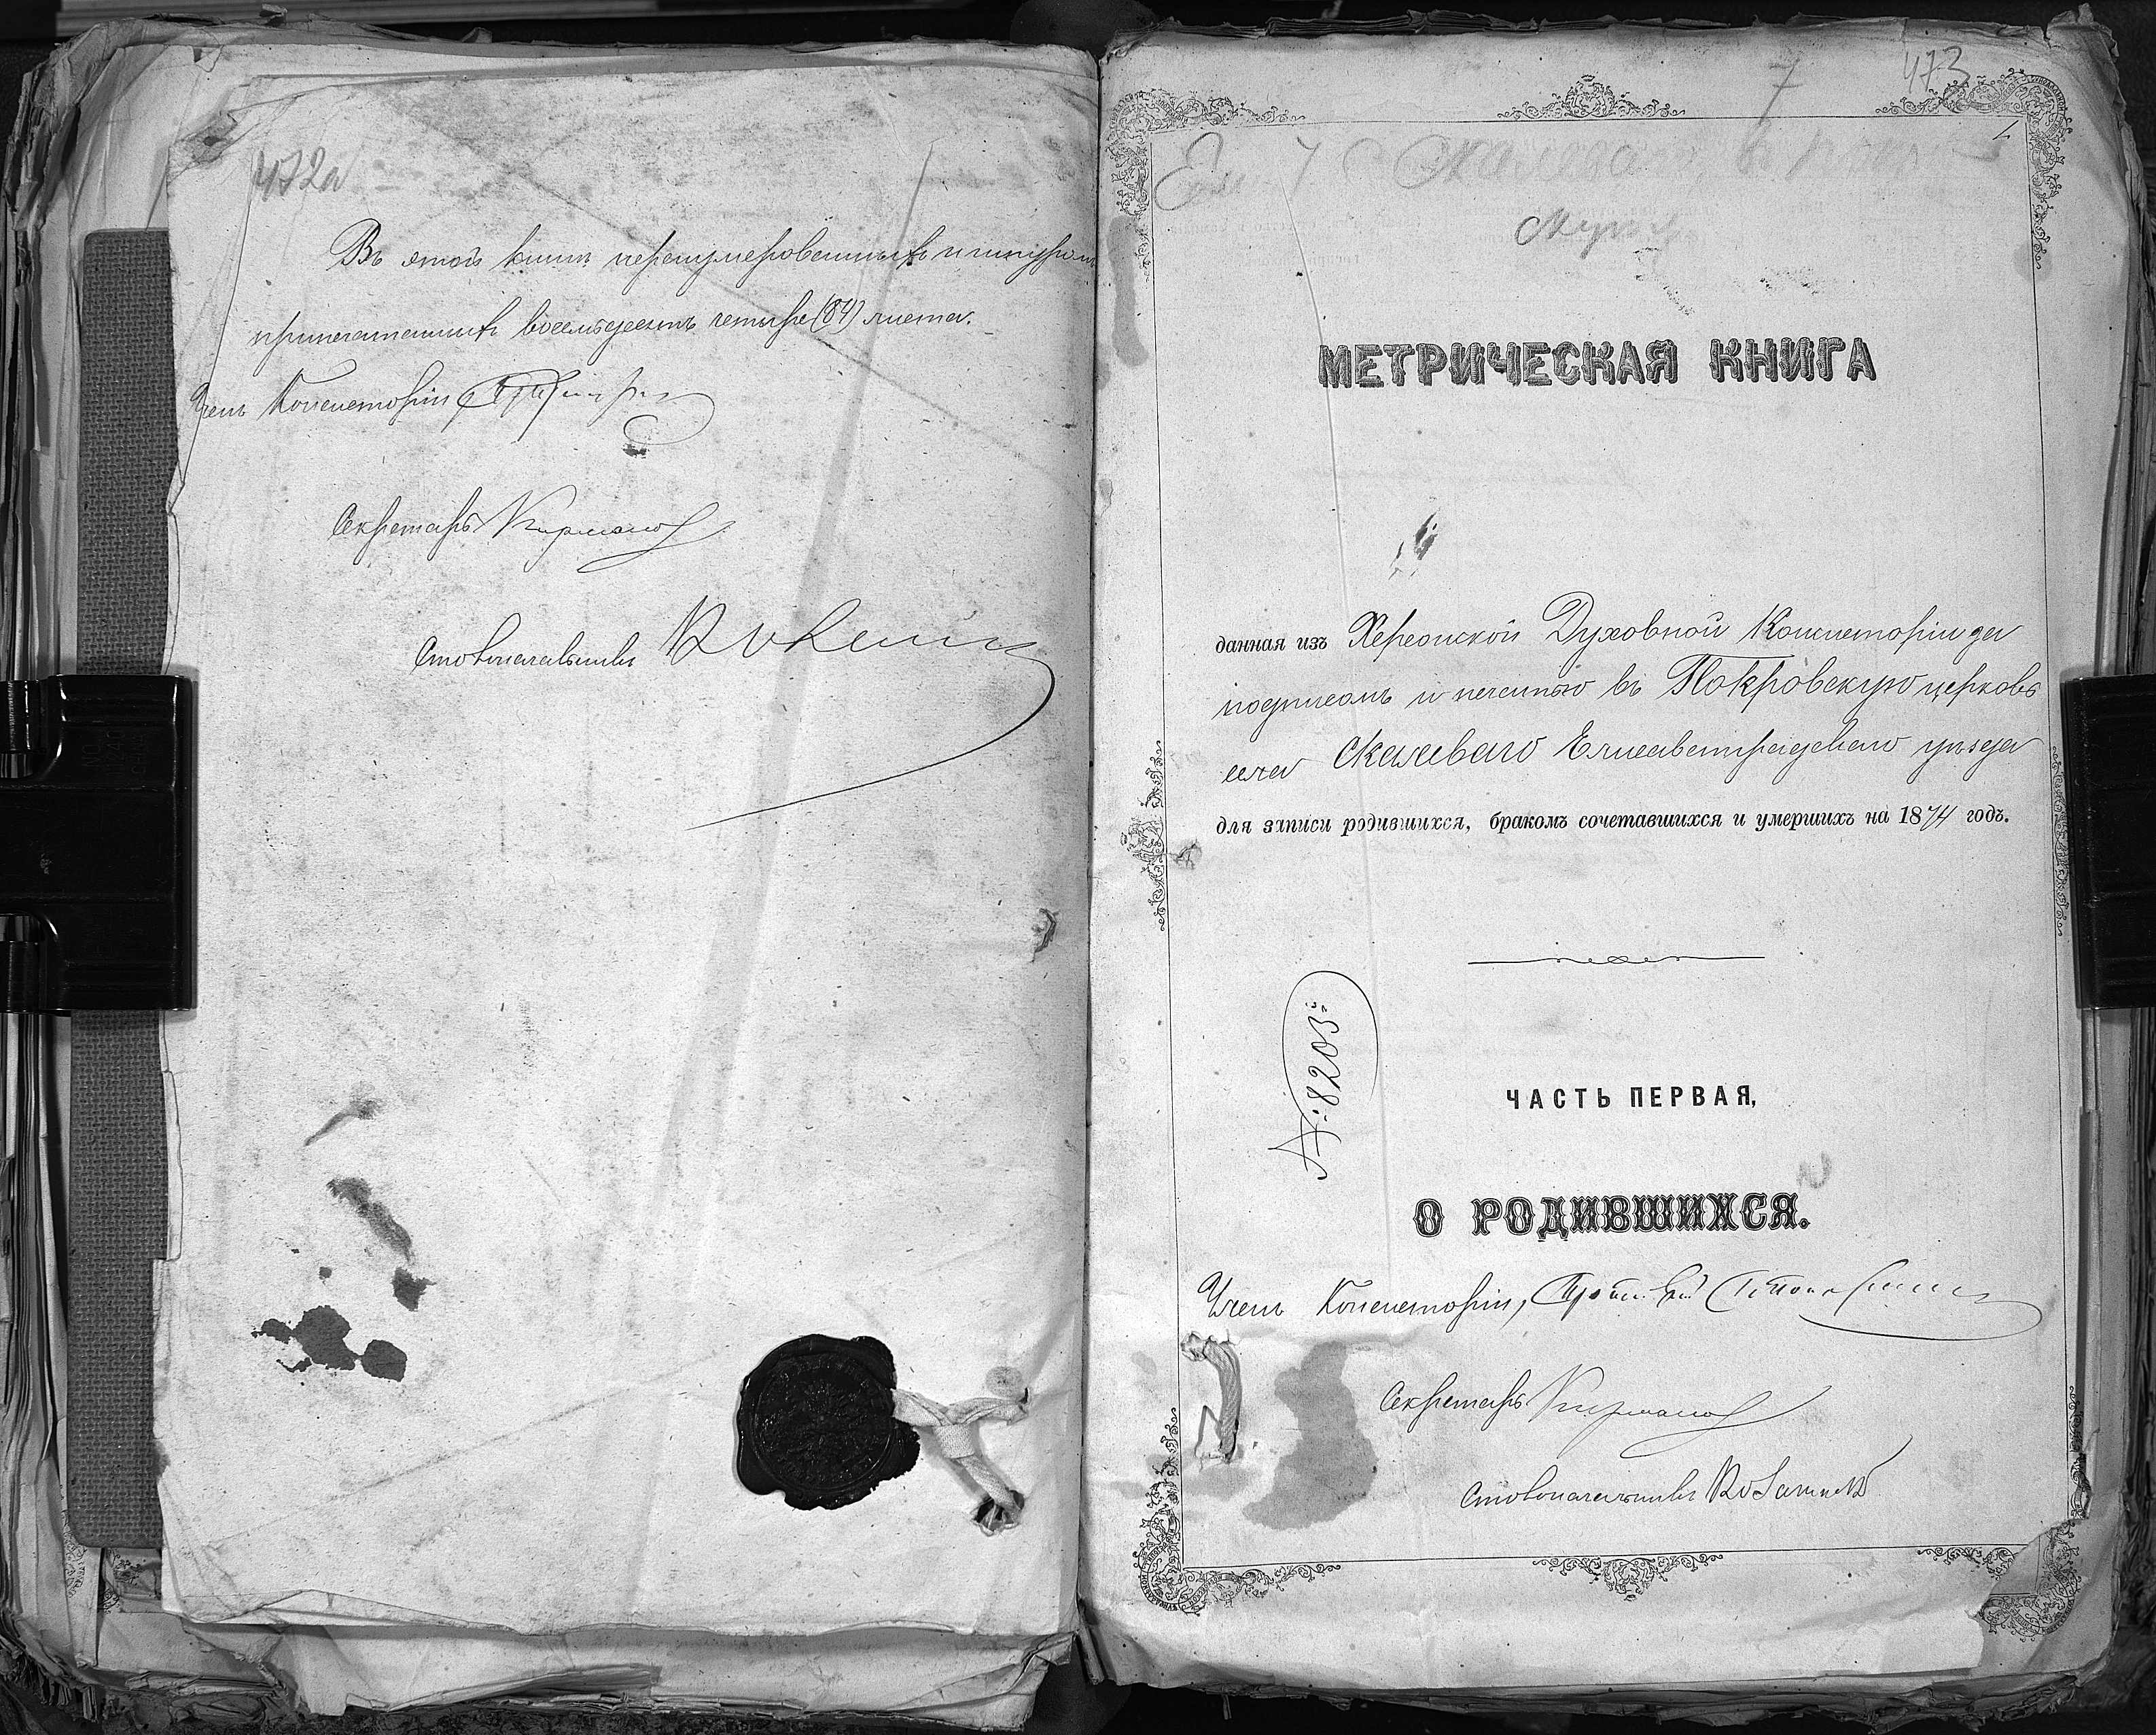 472а
Въ этой книгѣ перенумерованныхъ и шнуромъ
припечатанныхъ восемьдесятъ четыре (84) листа.
Членъ Консисторіи,
Секретарь
Столоначальникъ
7
473
1
МЕТРИЧЕСКАЯ КНИГА
данная изъ Херсонской Духовной Консисторіи за
подписомъ и печатью въ Покровскую церковь
села Скалеваго Елисаветградскаго уѣзда
для записи родившихся, бракомъ сочетавшихся и умершихъ на 1874 годъ.
№: 8203
ЧАСТЬ ПЕРВАЯ,
О РОДИВШИХСЯ.
Членъ Консисторіи,
Секретарь
Столоначальникъ